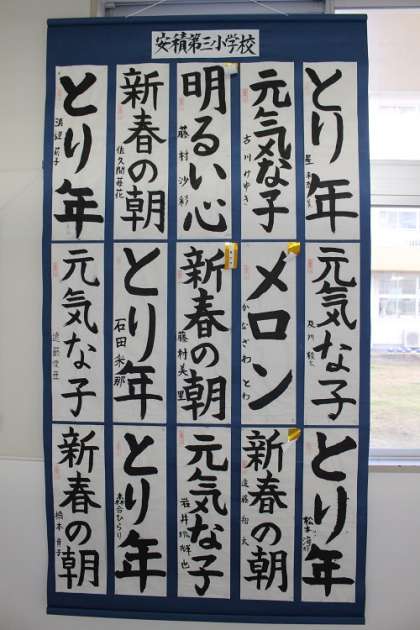 安積第三小学校
とり年
元気な子
古川けゆき
明るい心
藤村沙彩
新春の朝
佐久間苺花
とり年
元気な子
メロン
かなざわとわ
新春の朝
藤村美里
とり年
石田米那
元気な子
とり年
新春の朝
遠藤翔大
元気な子
とり年
森合ひらり
新春の朝
橋本